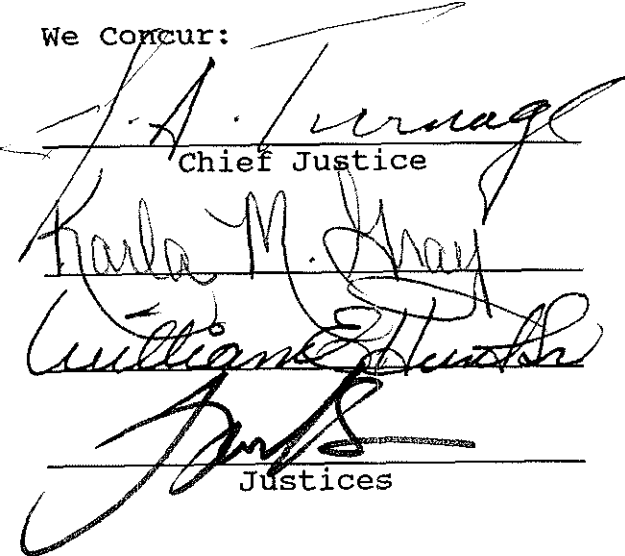 We Concur:
J. A. Turnage
Chief Justice
Karla M. Gray
William E. Hunt Sr
Justices